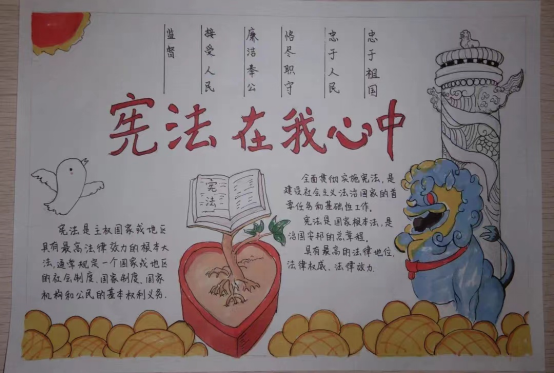 忠于祖国
忠于人民
恪尽职守
廉洁奉公
接受人民
监督
宪法在我心中
宪法
宪法是主权国家或地区
具有最高法律效力的根本大
法,通常规定一个国家或地区
的社会制度、国家制度、国家
机构和公民的基本权利义务。
全面贯彻实施宪法,是
建设社会主义法治国家的首
要任务和基础性工作。
宪法是国家根本法,是
治国安邦的总章程,
具有最高的法律地位,
法律权威、法律效力